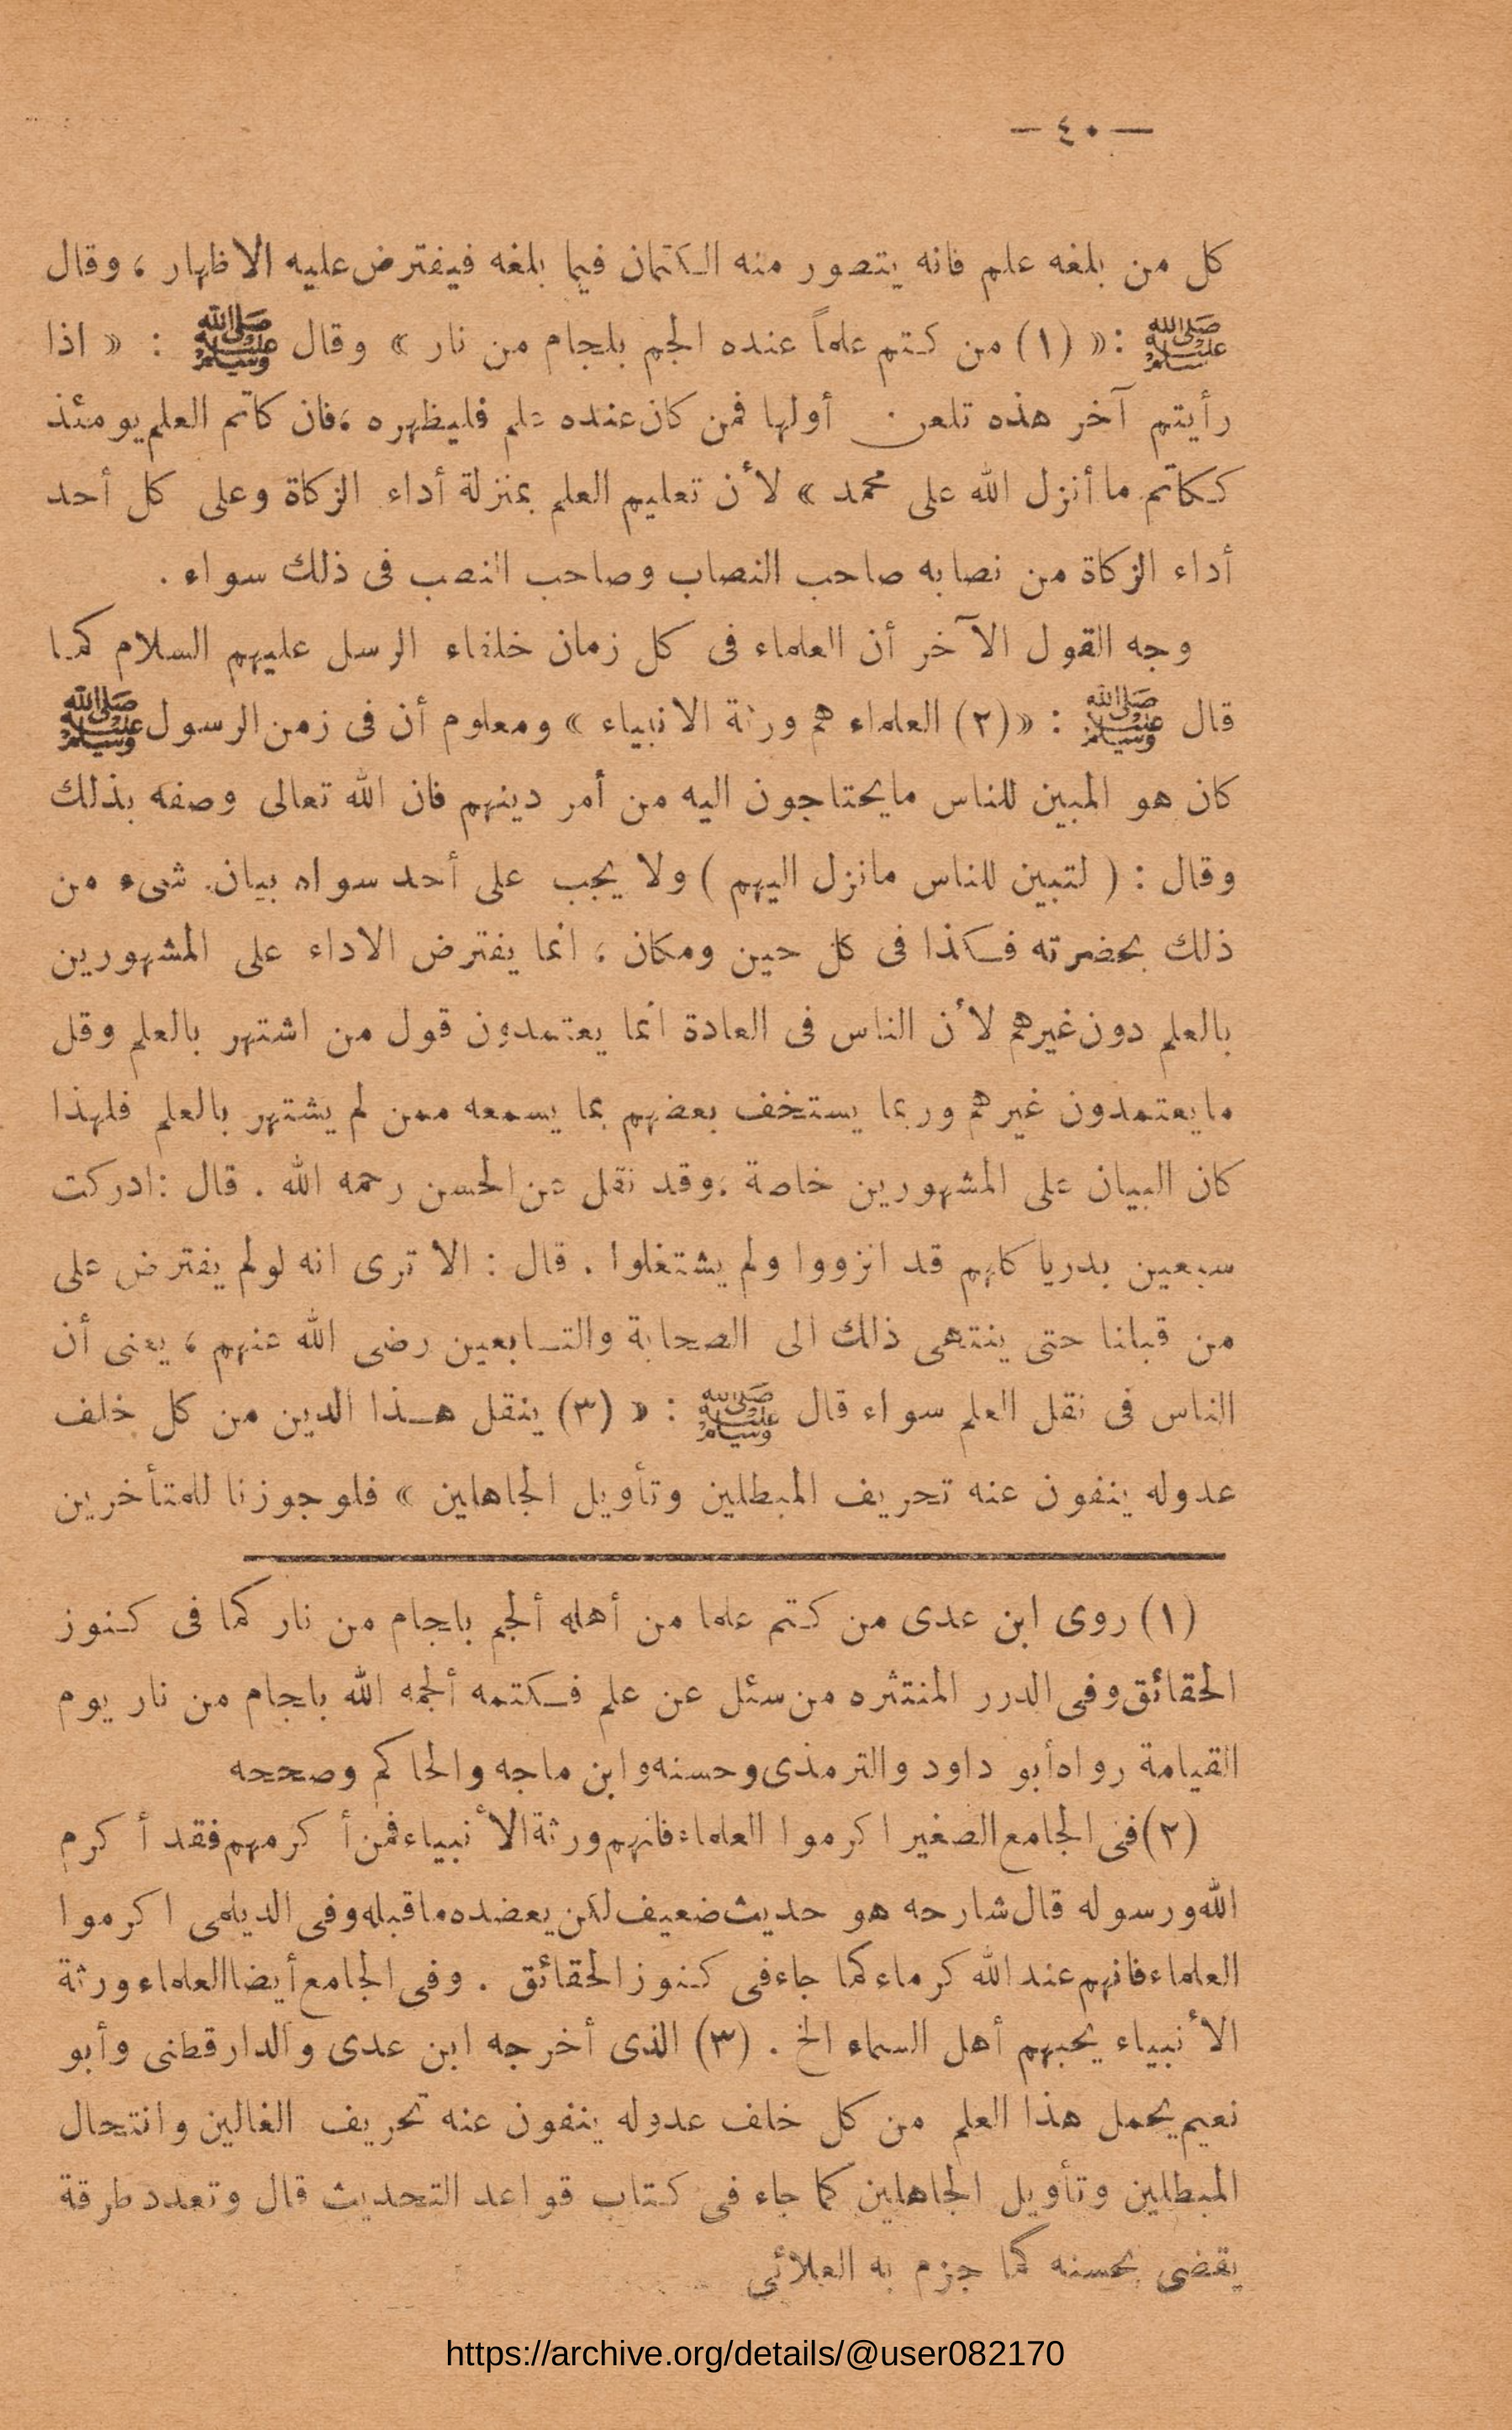 — ٤٠ —
كل من بلغه علم فانه يتصور منه الكتمان فيما بلغه فيفترض عليه الاظهار ، وقال
ﷺ : « (١) من كتم علماً عنده الجم بلجام من نار » وقال ﷺ : « اذا
رأيتم آخر هذه تلعن أولها فمن كان عنده علم فليظهره ، فان كاتم العلم يومئذ
ككاتم ما أنزل الله على محمد » لأن تعليم العلم بمنزلة أداء الزكاة وعلى كل أحد
أداء الزكاة من نصابه صاحب النصاب وصاحب النصب فى ذلك سواء .
وجه القول الآخر أن العلماء فى كل زمان خلفاء الرسل عليهم السلام كما
قال ﷺ : « (٢) العلماء هم ورثة الانبياء » ومعلوم أن فى زمن الرسول ﷺ
كان هو المبين للناس مايحتاجون اليه من أمر دينهم فان الله تعالى وصفه بذلك
وقال : ( لتبين للناس مانزل اليهم ) ولا يجب على أحد سواه بيان شىء من
ذلك بحضرته فكذا فى كل حين ومكان ، انما يفترض الاداء على المشهورين
بالعلم دون غيرهم لأن الناس فى العادة انما يعتمدون قول من اشتهر بالعلم وقل
مايعتمدون غيرهم وربما يستخف بعضهم بما يسمعه ممن لم يشتهر بالعلم فلهذا
كان البيان على المشهورين خاصة ، وقد نقل عن الحسن رحمه الله . قال : ادركت
سبعين بدريا كلهم قد انزووا ولم يشتغلوا . قال : الا ترى انه لولم يفترض على
من قبلنا حتى ينتهى ذلك الى الصحابة والتابعين رضى الله عنهم ، يعنى أن
الناس فى نقل العلم سواء قال ﷺ : « (٣) ينقل هذا الدين من كل خلف
عدوله ينفون عنه تحريف المبطلين وتأويل الجاهلين » فلو جوزنا للمتأخرين
(١) روى ابن عدى من كتم علما من أهله ألجم بلجام من نار كما فى كنوز
الحقائق وفى الدرر المنتثره من سئل عن علم فكتمه ألجمه الله بلجام من نار يوم
القيامة رواه أبو داود والترمذى وحسنه وابن ماجه والحاكم وصححه
(٢) فى الجامع الصغير اكرموا العلماء فانهم ورثة الأنبياء فمن أكرمهم فقد أكرم
الله ورسوله قال شارحه هو حديث ضعيف لكن يعضده ماقبله وفى الديلمى اكرموا
العلماء فانهم عند الله كرماء كما جاء فى كنوز الحقائق . وفى الجامع أيضا العلماء ورثة
الأنبياء يحبهم أهل السماء الخ . (٣) الذى أخرجه ابن عدى والدارقطنى وأبو
نعيم يحمل هذا العلم من كل خلف عدوله ينفون عنه تحريف الغالين وانتحال
المبطلين وتأويل الجاهلين كما جاء فى كتاب قواعد التحديث قال وتعدد طرقة
يقضى بحسنه كما جزم به العلائى
https://archive.org/details/@user082170